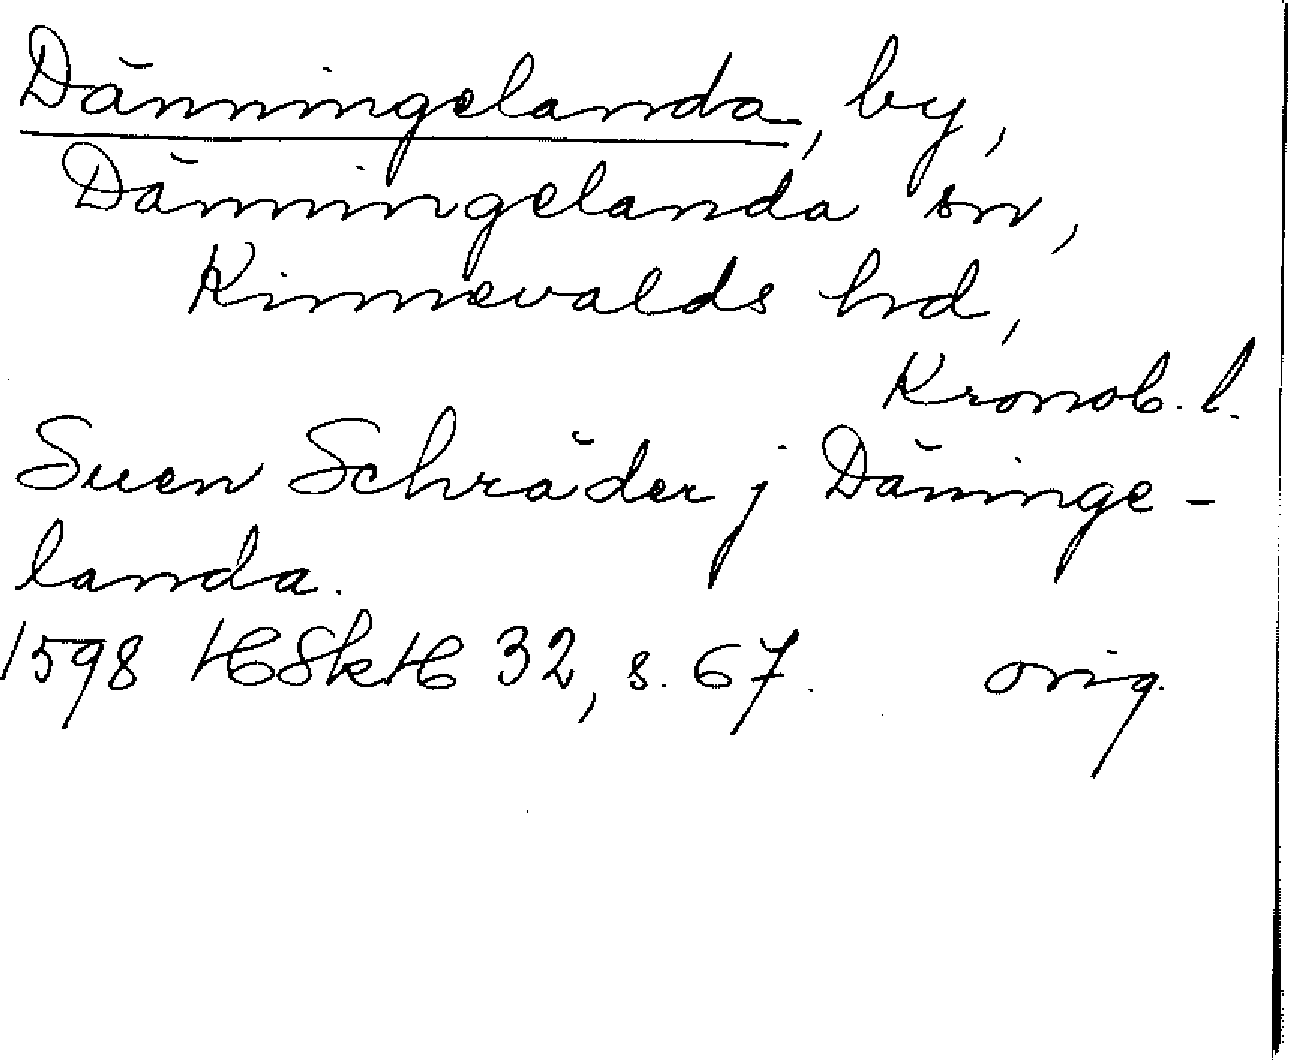 Dänningelanda, by,
Dänningelanda sn,
Kinnevalds hd,
Kronob. l.
Suen Schräder j Däninge-
landa.
1598 HSkH 32, s. 67. orig.